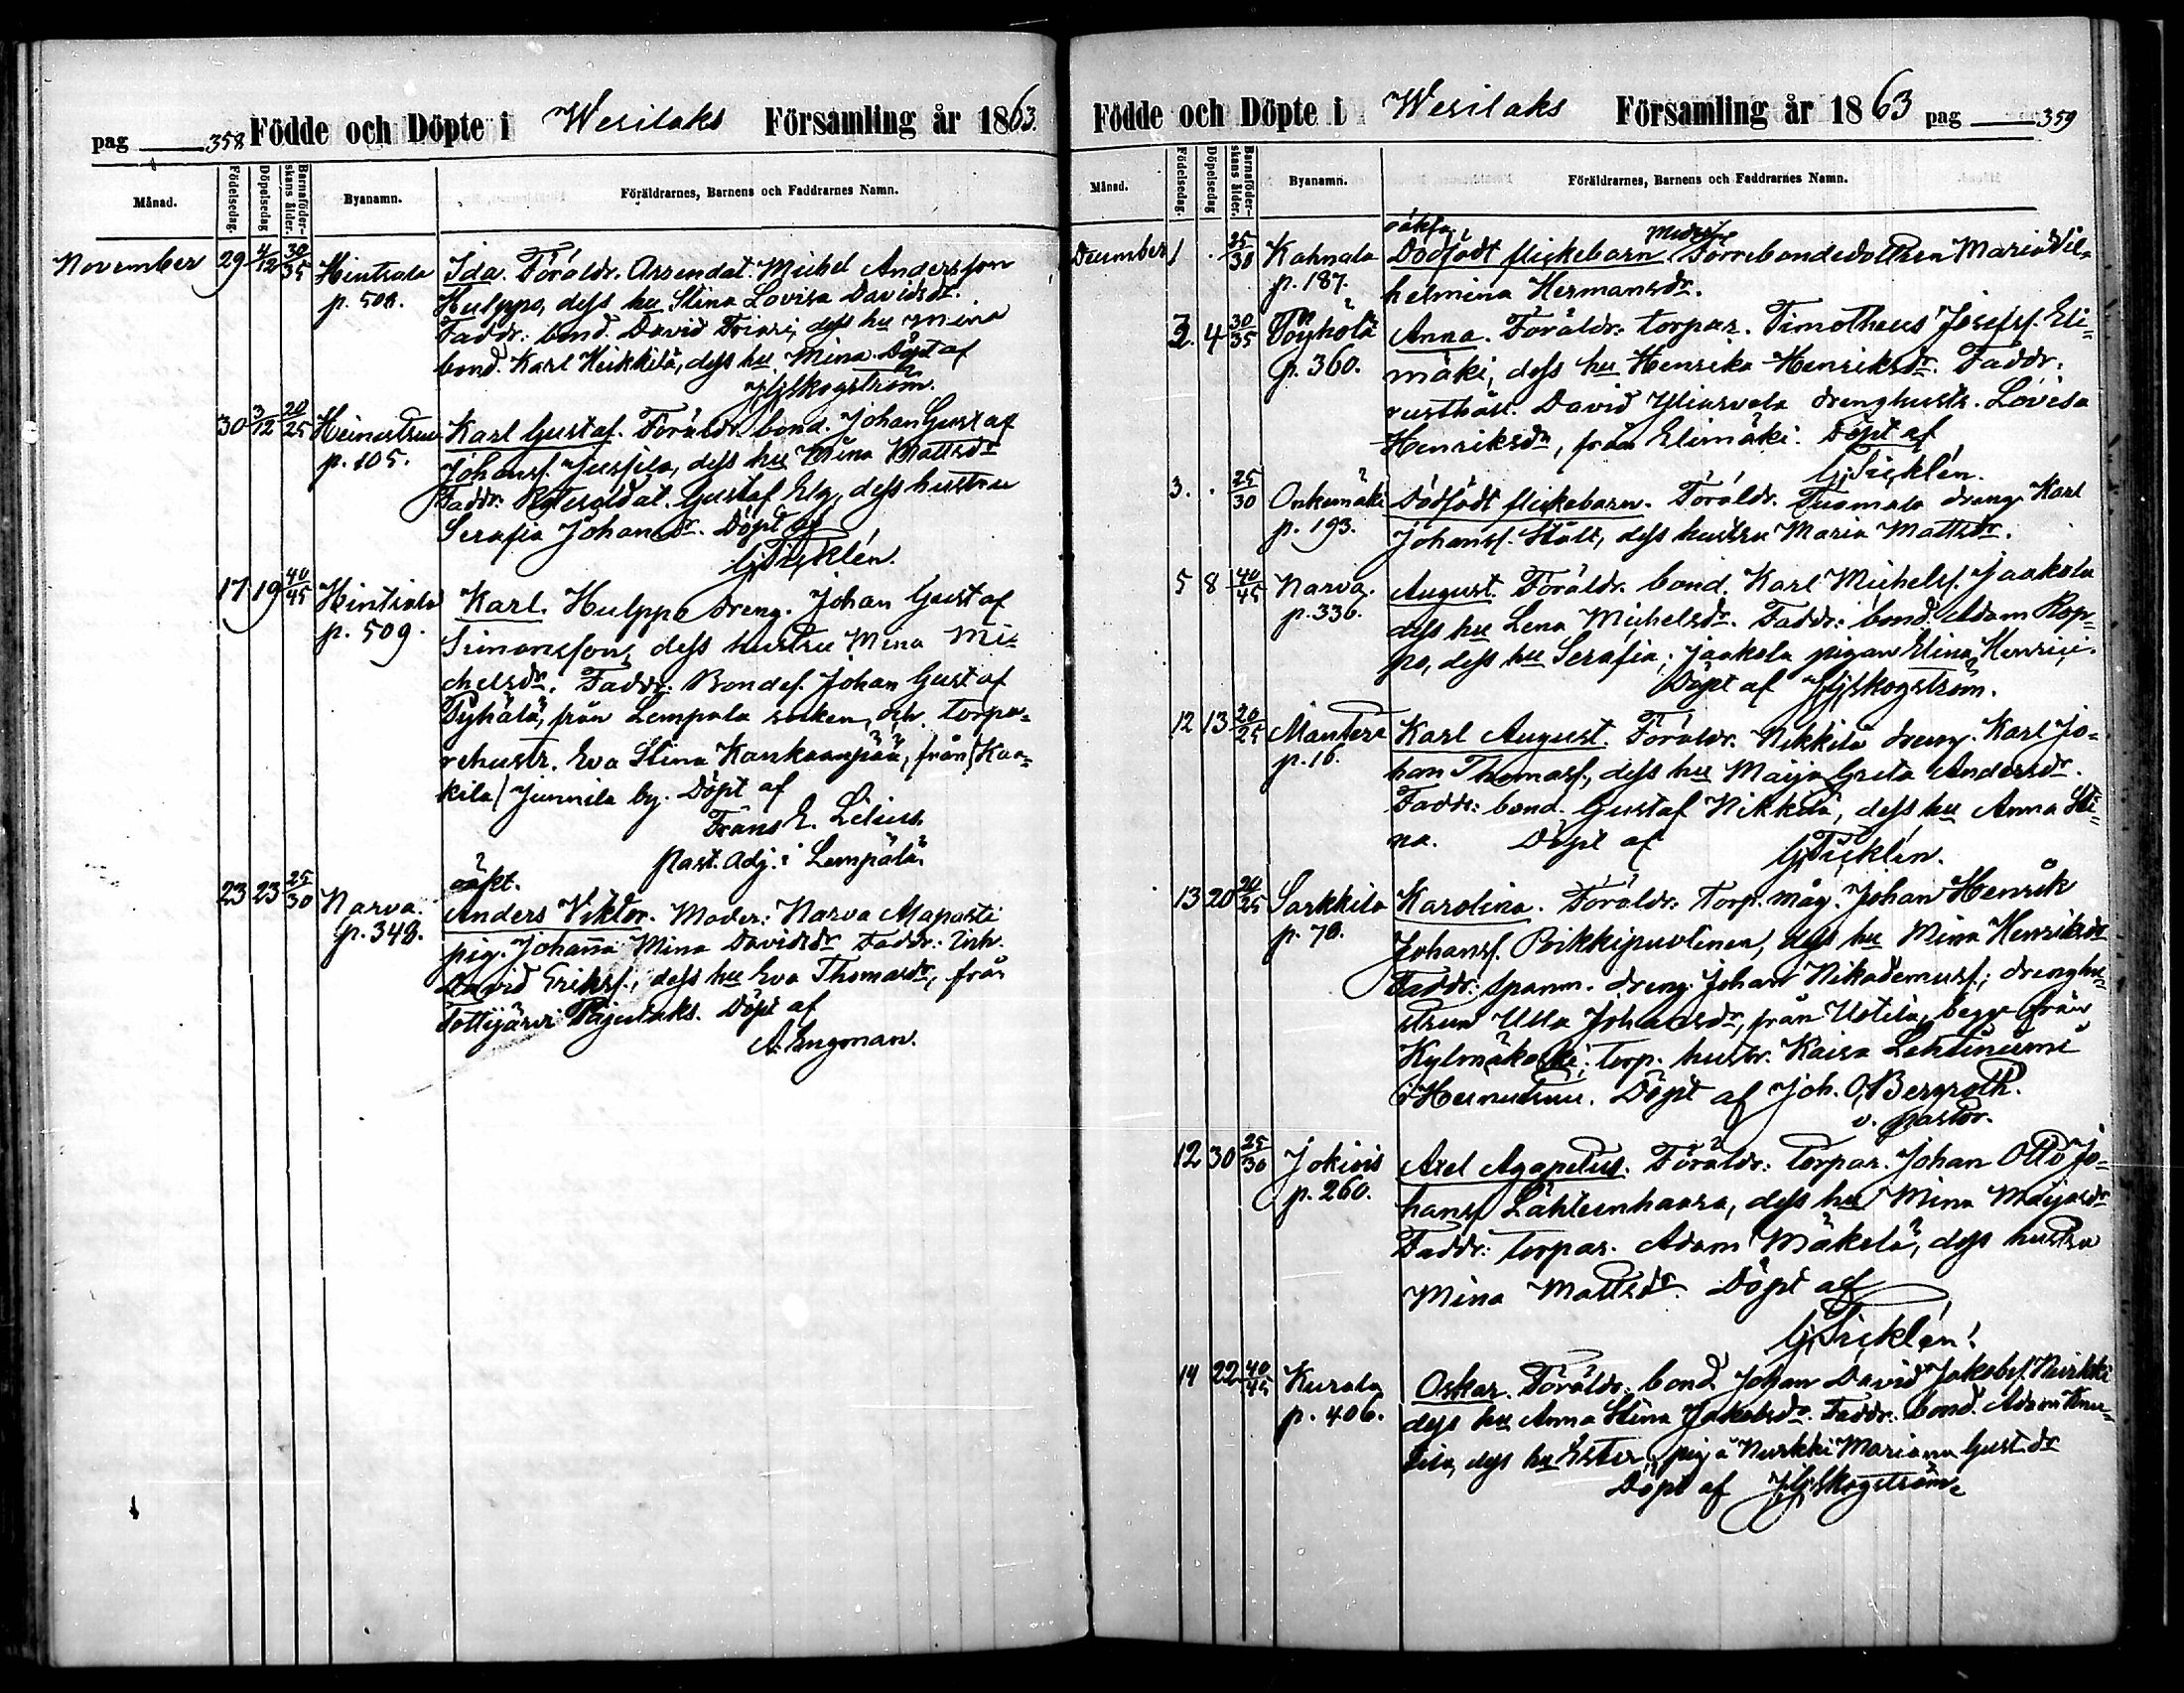 pag 358 Födde och Döpte i Wesilaks Församling år 1863.
Månad. Födelsedag. Döpelsedag Barnaföderskans ålder. Byanamn. Föräldrarnes, Barnens och Faddrarnes Namn.
November 29 4/12 30/35 Hintsala Ida. Föräldr. Arrendat. Michel Andersson
p. 509. Hulppo, dess hu Stina Lovisa Davidsdr.
Faddr. bond. David Friari, dess hu Mina
bond. Karl Heikkilä, dess hu Mina. Döpt af
Skogström.
30 3/12 20/25 Heinustrue Karl Gustaf. Föräldr. bond. Johan Gustaf
p. 105. Johanss. Jussila, dess hu Mina Mattsdr
Faddr. Rotesoldat. Gustaf Elg, dess hustru
Serafia Johansdr. Döpt af
G. Ticklén.
17 19 40/45 Hintsala Karl. Hulppo dreng. Johan Gustaf
p. 509. Simonsson, dess hustru Mina Mi-
chelsdr. Faddr. Bondes. Johan Gustaf
Pyhälä, från Lempala socken, och torpa-
rehustr. Eva Stina Kankaanpää, från Kaa-
kila / Junnila by. Döpt af
Frans E. Lilius
Past. Adj. i Lempälä.
oäkt.
23 23 25/30 Narva. Anders Viktor. Moder: Narva Ajaposti
p. 348. pig. Johanna Mina Davidsdr Faddr. Inh.
David Erikss., dess hu Eva Thomasdr, från
Tottijärvi Pajulaks. Döpt af
A. Engman.
Födde och Döpte i Wesilaks Församling år 1863 pag 359
Månad. Födelsedag. Döpelsedag Barnaföderskans ålder. Byanamn. Föräldrarnes, Barnens och Faddrarnes Namn.
oäkta Moder
December 1 . 25/30 Kahnala Dödfödt flickebarn. Torrebondedottren Maria Vil-
p. 187. helmina Hermansdr.
2. 4 30/35 Pöyhölä Anna. Föräldr. torpar. Timotheus Josefss. Eli-
p. 360. mäki, dess hu Henrika Henriksdr. Faddr.
rusthåll. David Yliarvela drenghustr. Lovisa
Henriksdr, från Elimäki. Döpt af
G. Ticklén.
3. . 25/30 Onkemäki Dödfödt flickebarn. Föräldr. Tuomala dreng Karl
p. 193. Johanss. Stålt, dess hustru Maria Mattsdr.
5 8 40/45 Narva. August. Föräldr. bond. Karl Michelss. Jaakola
p. 336. dess hu Lena Michelsdr. Faddr: bond. Adam Rop-
po, dess hu Serafia; Jaakola pigan Elina Henrici.
Döpt af Skogström.
12 13 20/25 Mantere Karl August. Föräldr. Nikkilä dreng. Karl Jo-
p. 16. han Thomass., dess hu Maija Greta Andersdr.
Faddr: bond. Gustaf Nikkilä, dess hu Anna Sti-
na. Döpt af G. Ticklén.
13 20 20/25 Sarkkila Karolina. Föräldr: Torp. måg. Johan Henrik
p. 70. Johanss. Pikkipuolinen, dess hu Mina Henriksdr
Faddr: Spanm. dreng. Johan Nikodemuss.; drenghu-
strun Ulla Johansdr, från Uotila, begge från
Kylmäkoski; torp. hustr. Kaisa Lehtiniemi
i Heinustrue. Döpt af Joh. O. Bergroth.
v. pastor.
12 30 25/30 Jokiois Axel Agapetus. Föräldr: torpar. Johan Otto Jo-
p. 260. hanss Lähteenhaara, dess hu Mina Maijasdr
Faddr: torpar. Adam Mäkelä, dess hustru
Mina Mattsdr. Döpt af
G. Ticklén.
14 22 40/45 Kurala Oskar. Föräldr. bond. Johan David Jakobss. Nurkki
p. 406. dess hu Anna Stina Jakobsdr. Faddr: bond. Adam Knu-
tila, dess hu Ester; pig å Nurkki Mariana Gust.dr
Döpt af Skogström